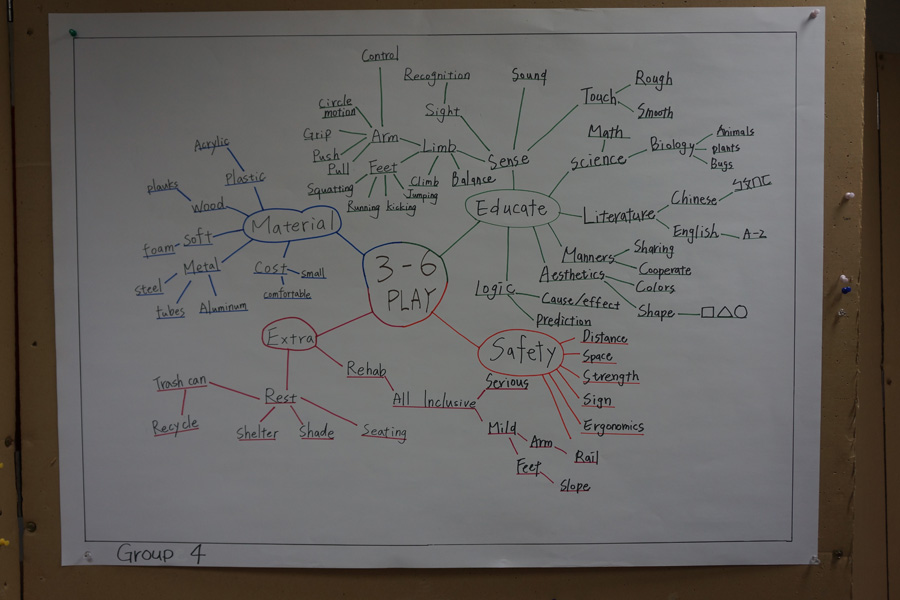 3-6
PLAY
Material
Plastic
Acrylic
Wood
planks
Soft
foam
Metal
steel
tubes
Aluminum
Cost
small
comfortable
Educate
Sense
Sight
Recognition
Sound
Touch
Rough
Smooth
Limb
Arm
Control
Circle
motion
Grip
Push
Pull
Feet
Squatting
Running
kicking
Jumping
Climb
Balance
Science
Math
Biology
Animals
plants
Bugs
Literature
Chinese
ㄅㄆㄇㄈ
English
A-Z
Manners
Sharing
Cooperate
Aesthetics
Colors
Shape
Logic
Cause/effect
Prediction
Safety
Distance
Space
Strength
Sign
Ergonomics
Rail
Extra
Rehab
All Inclusive
Serious
Mild
Arm
Feet
Slope
Rest
Trash can
Recycle
Shelter
Shade
Seating
Group 4